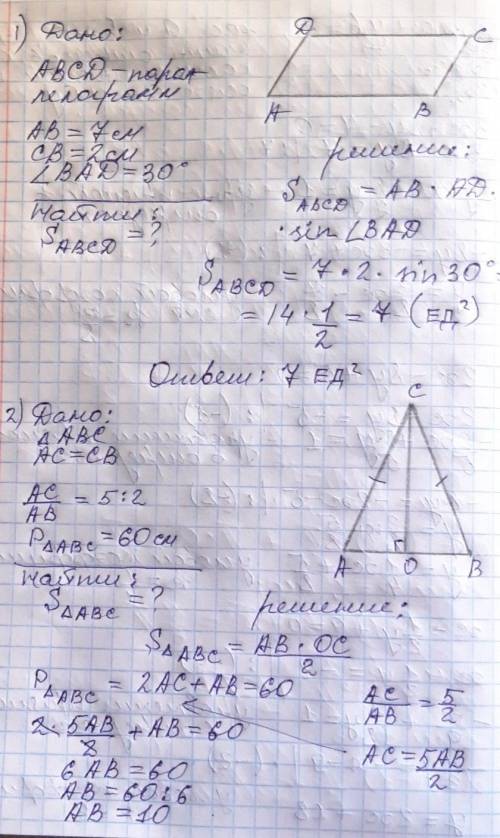 1) Дано:
D C
ABCD - парал
лелограмм
A B
AB = 7 см
CB = 2 см
∠BAD = 30°
решение:
S ABCD = AB · AD ·
· sin ∠BAD
найти:
S ABCD = ?
S ABCD = 7 · 2 · sin 30° =
= 14 · 1/2 = 7 (ЕД²)
Ответ: 7 ЕД²
2) Дано:
C
△ABC
AC = CB
AC/AB = 5:2
P△ABC = 60 см
A O B
найти:
S△ABC = ?
решение:
S△ABC = AB · OC/2
P△ABC = 2AC + AB = 60
AC/AB = 5/2
2 · 5AB/2 + AB = 60
AC = 5AB/2
6 AB = 60
AB = 60 : 6
AB = 10